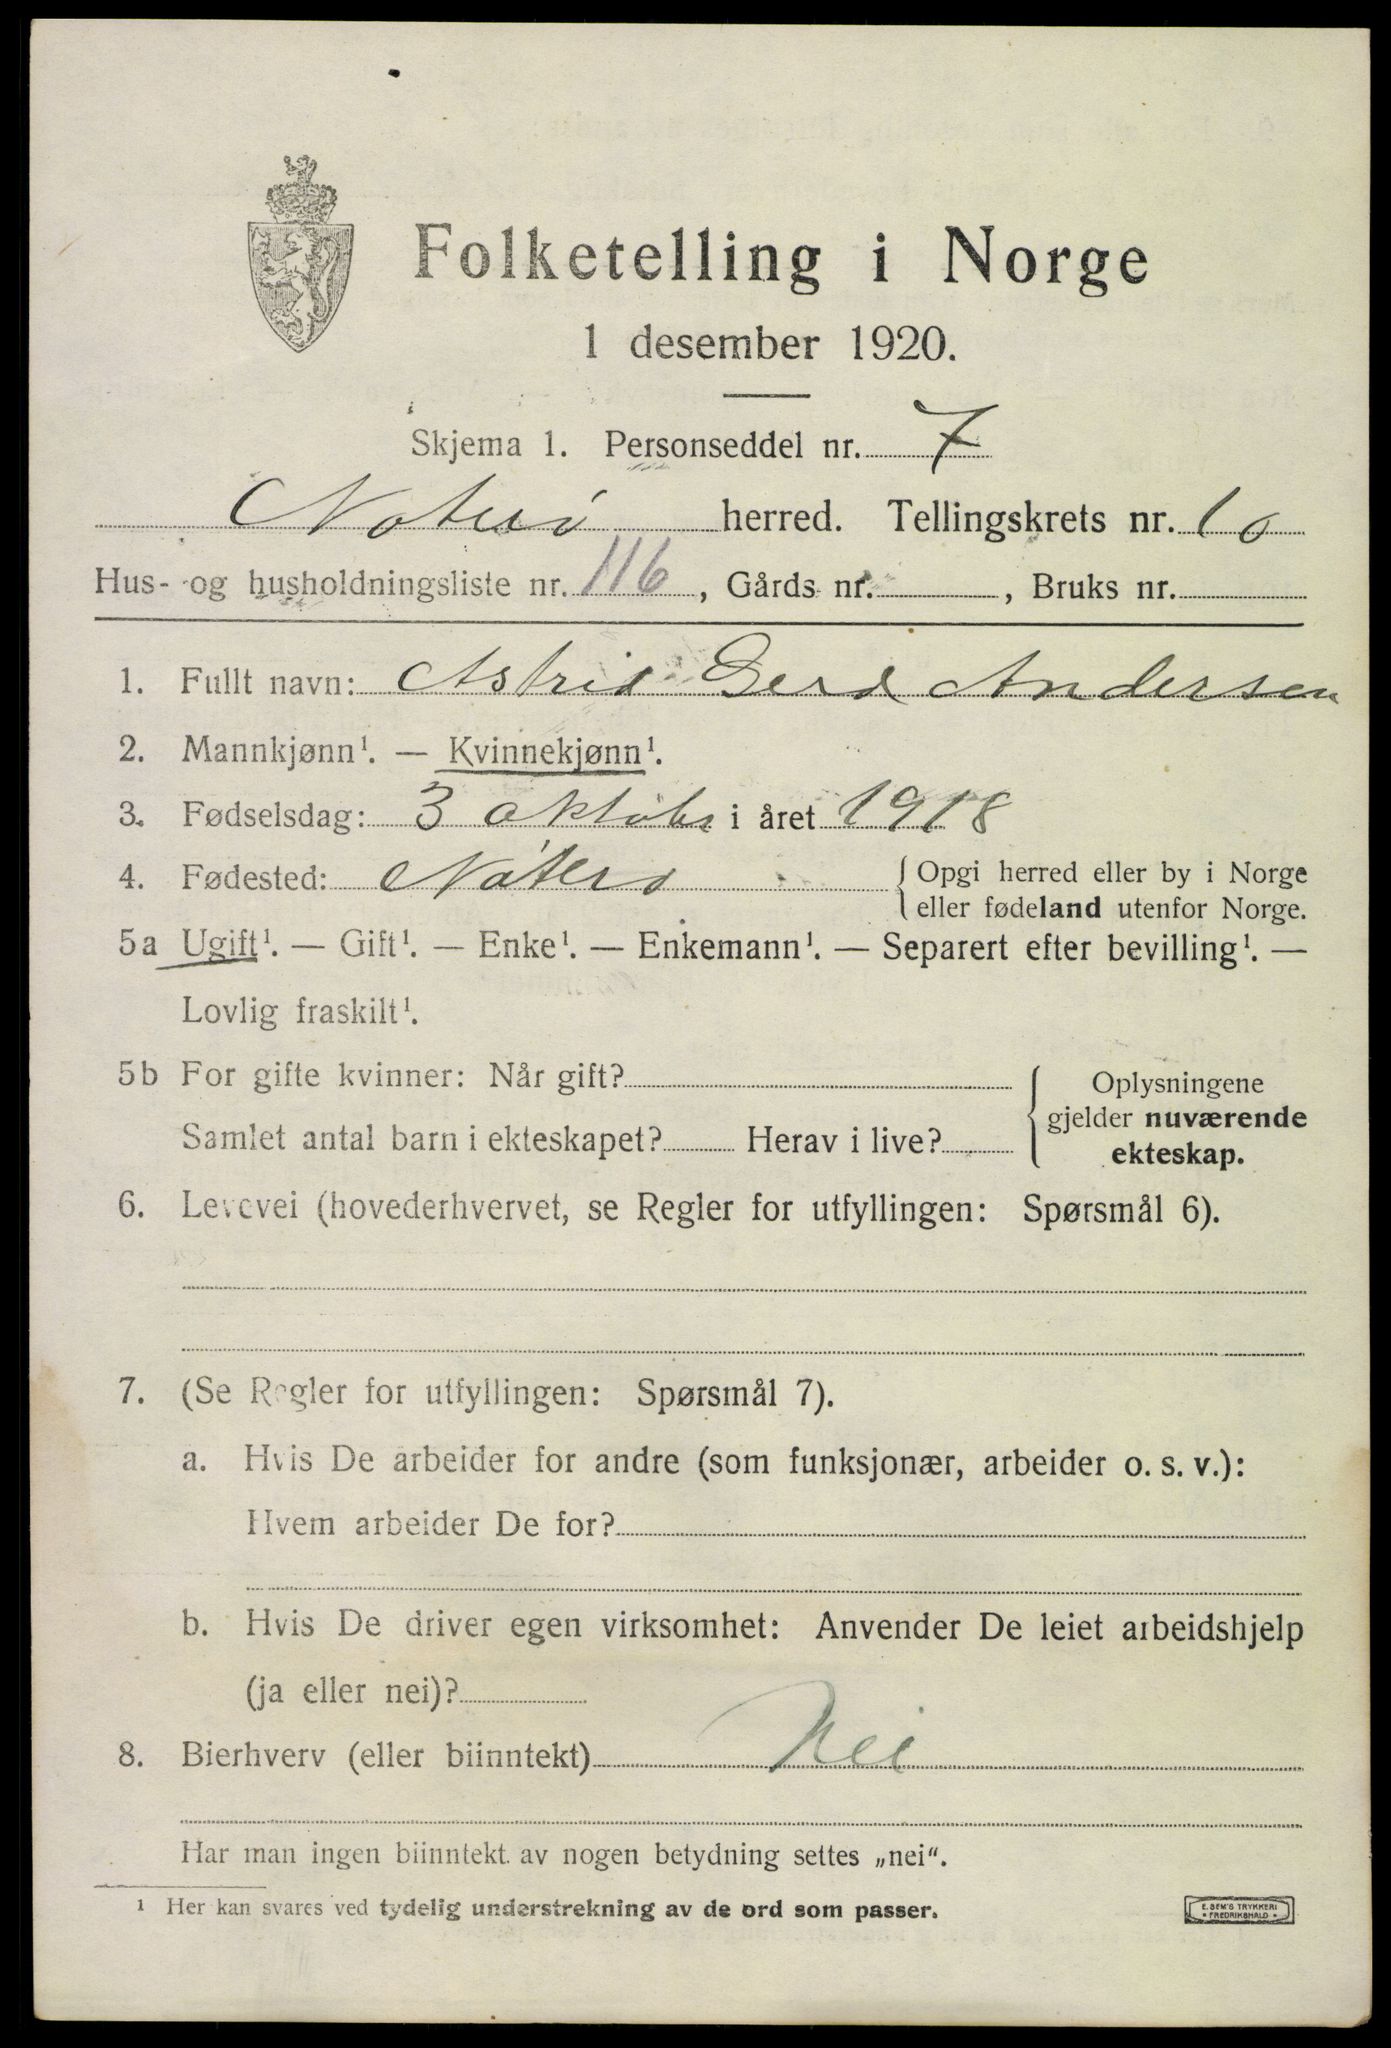 Folketelling i Norge
1 desember 1920.
Skjema 1. Personseddel nr. 7
Nøterø herred. Tellingskrets nr. 10
Hus- og husholdningsliste nr. 116, Gårds nr. , Bruks nr.
1. Fullt navn: Astrid Gerd Andersen
2. Mannkjønn¹. — Kvinnekjønn¹.
3. Fødselsdag: 3 oktober i året 1918
4. Fødested: Nøterø { Opgi herred eller by i Norge
eller fødeland utenfor Norge.
5a Ugift¹. — Gift¹. — Enke¹. — Enkemann¹. — Separert efter bevilling¹. —
Lovlig fraskilt¹.
5b For gifte kvinner: Når gift?
Samlet antal barn i ekteskapet? Herav i live?
{ Oplysningene
gjelder nuværende
ekteskap.
6. Levevei (hovederhvervet, se Regler for utfyllingen: Spørsmål 6).
7. (Se Regler for utfyllingen: Spørsmål 7).
a. Hvis De arbeider for andre (som funksjonær, arbeider o. s. v.):
Hvem arbeider De for?
b. Hvis De driver egen virksomhet: Anvender De leiet arbeidshjelp
(ja eller nei)?
8. Bierhverv (eller biinntekt) Nei
Har man ingen biinntekt av nogen betydning settes „nei“.
¹ Her kan svares ved tydelig understrekning av de ord som passer.
E. SEM'S TRYKKERI
FREDRIKSHALD